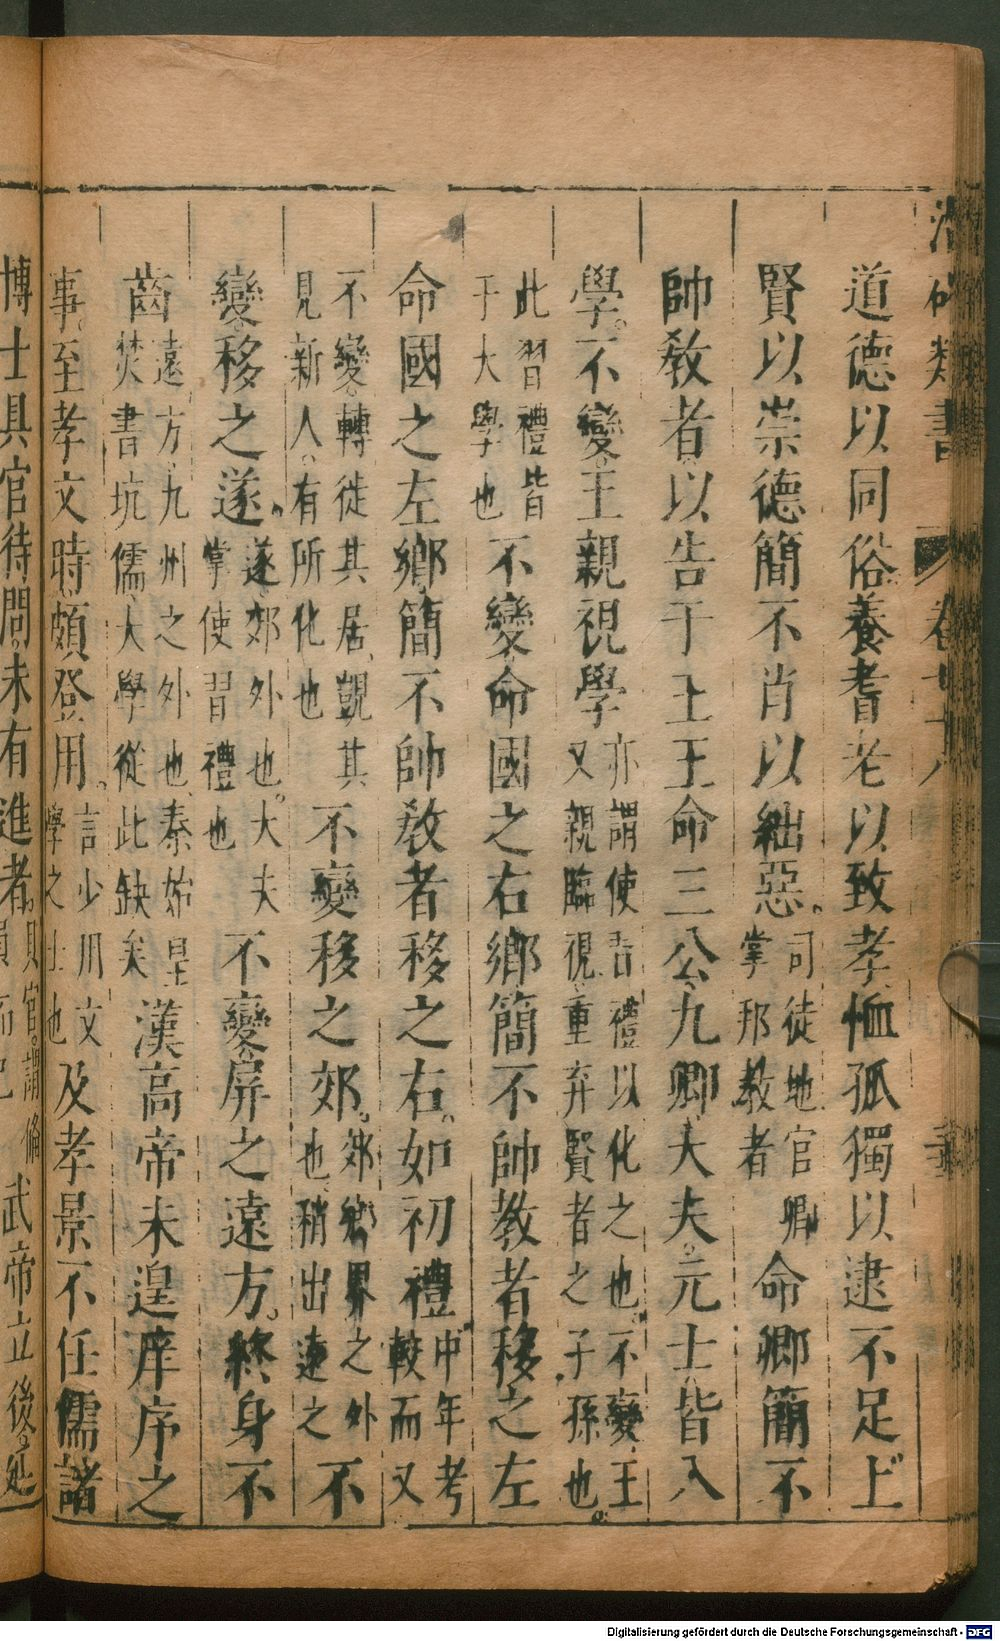 類書 卷
道德以同俗養耆老以致孝恤孤獨以逮不足上
賢以崇德簡不肖以絀惡司徒地官卿掌邦教者命卿簡不
帥教者以告于王王命三公九卿大夫元士皆入
學不變王親視學亦謂使習禮以化之也不變王又親臨視重弃賢者之子孫也
此習禮皆于大學也不變命國之右鄉簡不帥教者移之左
命國之左鄉簡不帥教者移之右如初禮中年考較而又
不變轉徙其居覬其見新人有所化也不變移之郊郊鄉界之外也稍出遠之不
變移之遂遂郊外也大夫掌使習禮也不變屏之遠方終身不
齒遠方九州之外也秦始皇焚書坑儒大學從此缺矣漢高帝未遑庠序之
事至孝文時頗登用言少用文學之士也及孝景不任儒諸
博士具官待問未有進者具官謂備員而已武帝立後処
Digitalisierung gefördert durch die Deutsche Forschungsgemeinschaft - DFG